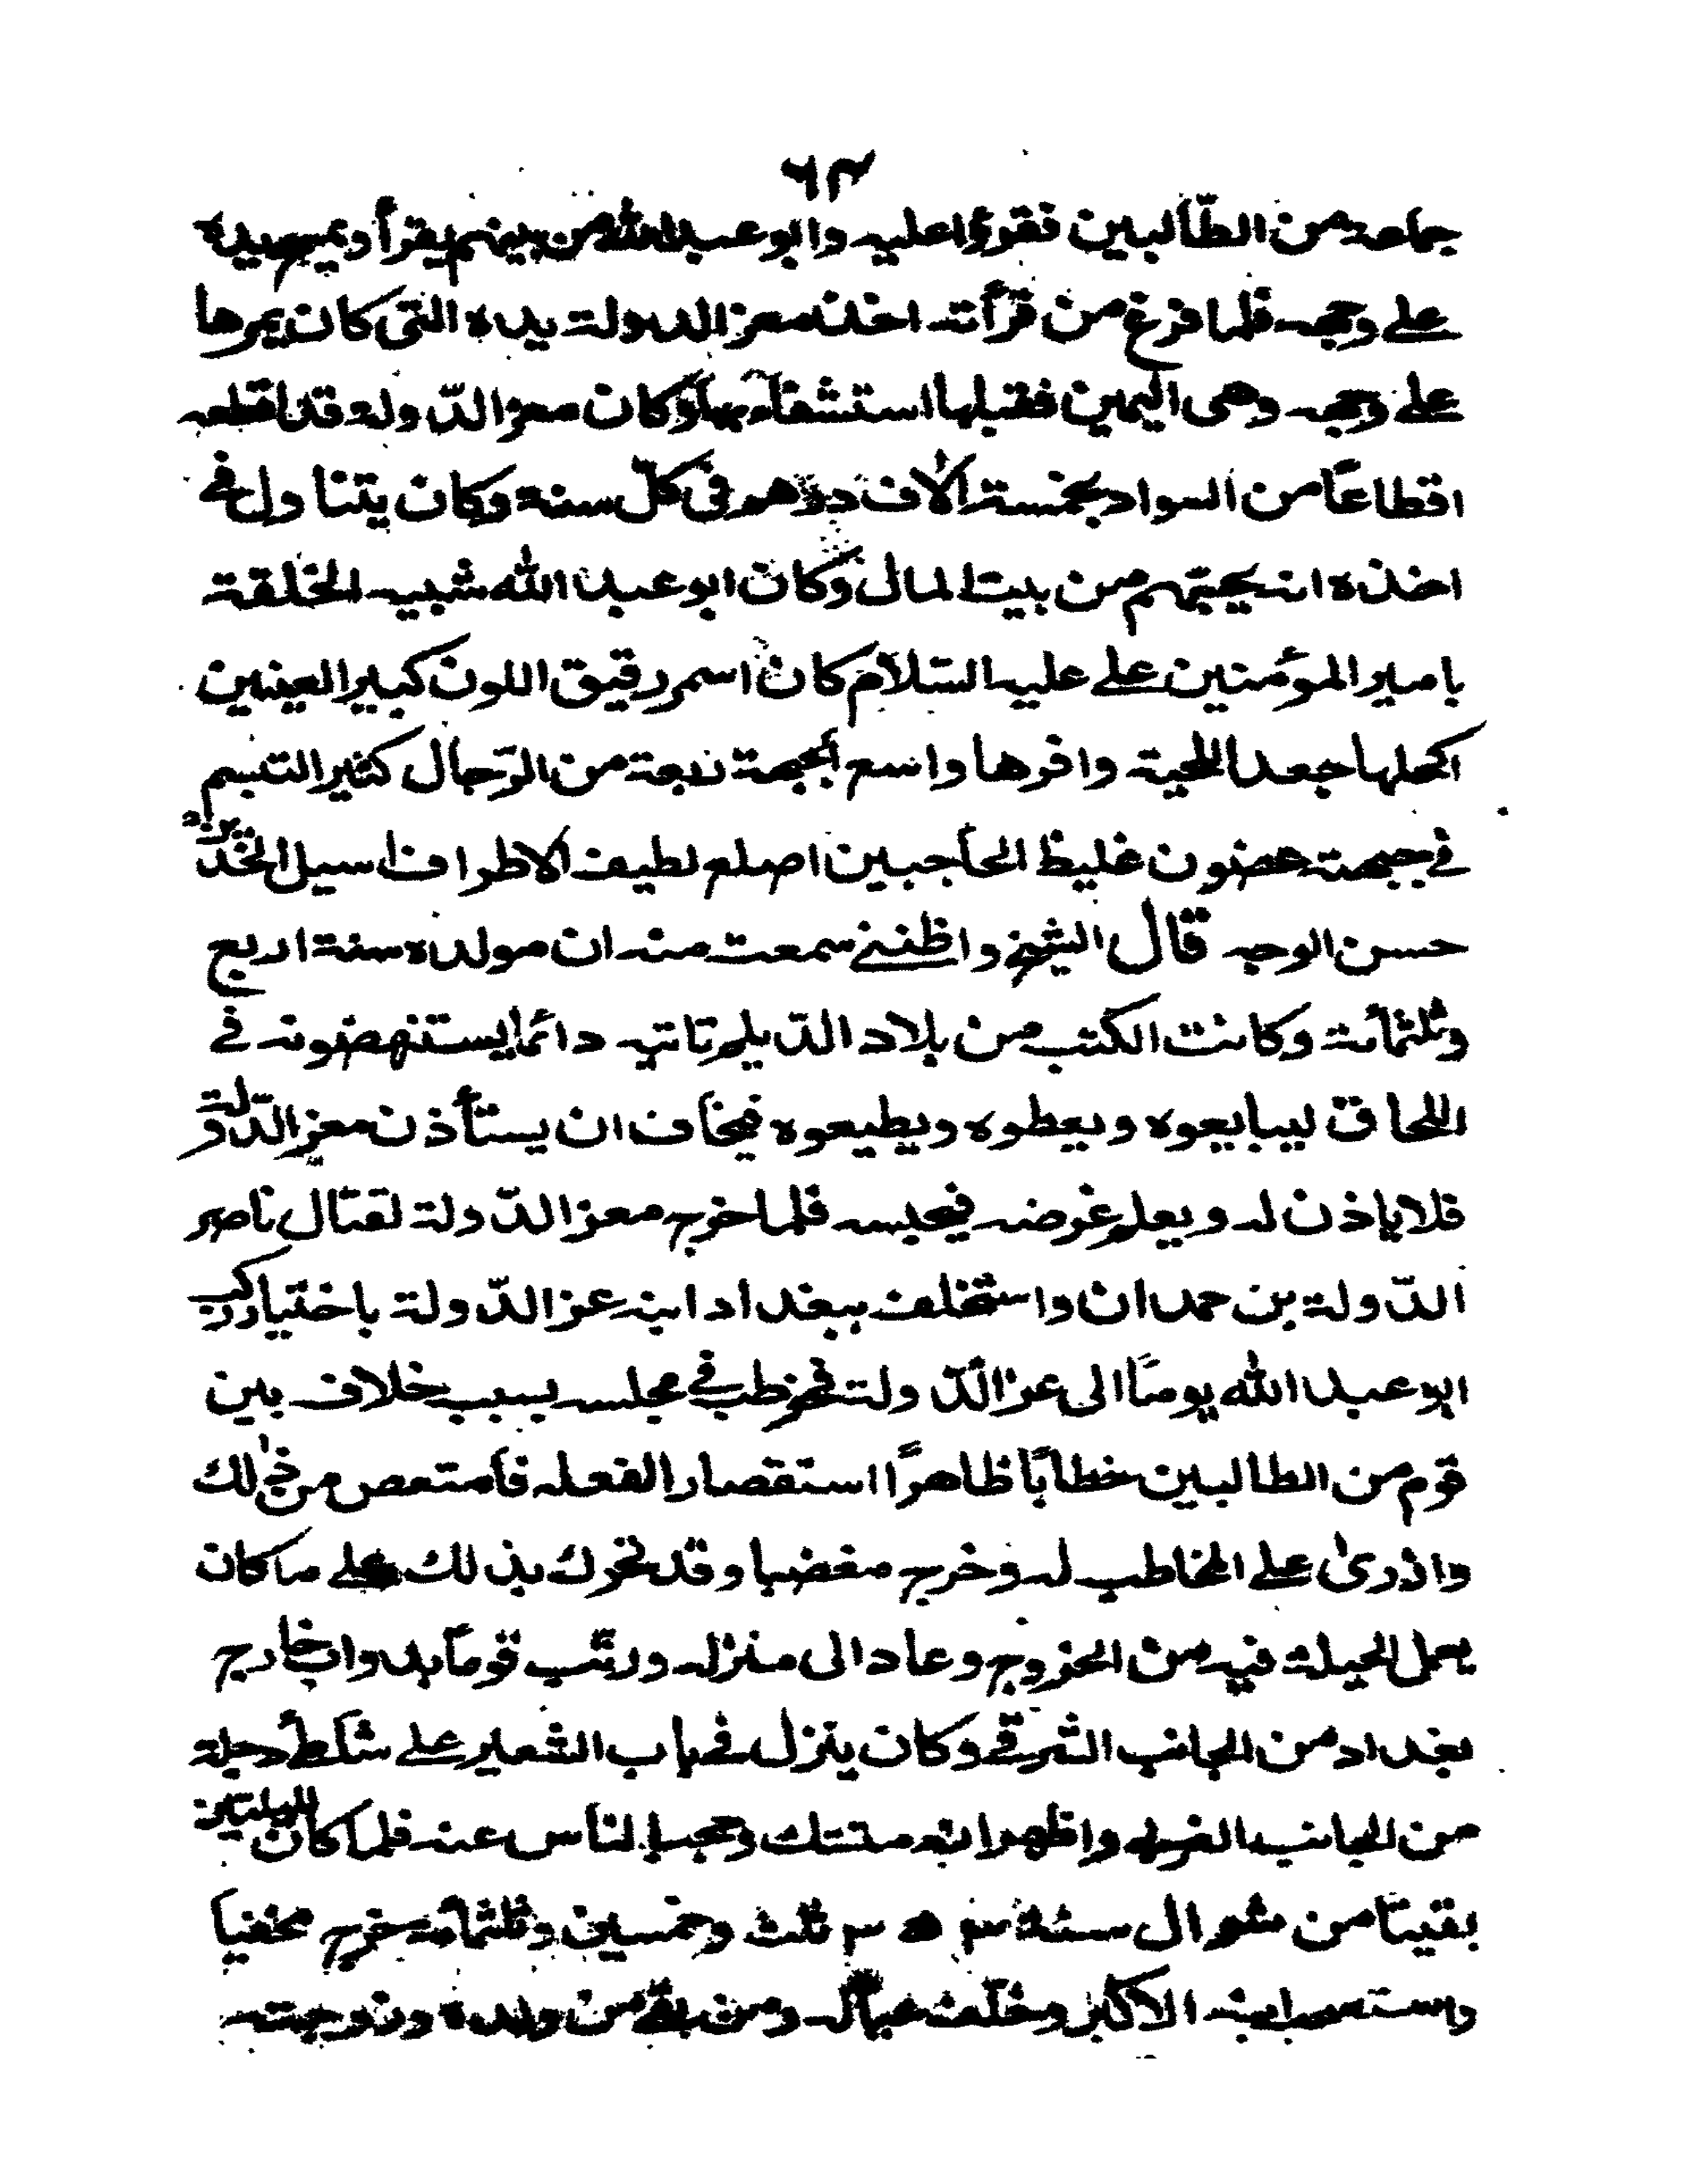 ٦٣
جماعة من الطّالبين فقرؤا عليه وابو عبد الله من بينهم يقرأ ويمسح يده
على وجهه فلما فرغ من قرأته اخذ معز الدولة يده التى كان يمرها
على وجهه وهى اليمين فقبلها استشفآء بها وكان معز الدّولة قد اقطعه
اقطاعًا من السواد بخمسة آلاف درهم فى كلّ سنة وكان يتناول في
اخذه انه يجبيهم من بيت المال وكان ابو عبد الله شبيه الخلقة
بامير المؤمنين على عليه السّلام كان اسمر رقيق اللون كبير العينين
اكحلها جعد اللحية وافرها واسع الجبهة ربعة من الرّجال كثير التبسم
في جبهته غضون غليظ الحاجبين اصلع لطيف الاطراف اسيل الخدّين
حسن الوجه قال الشيخ واظننى سمعت منه ان مولده سنة اربع
وثلثمائة وكانت الكتب من بلاد الدّيلم تاتيه دائما يستنهضونه في
اللحاق ليبايعوه ويعطوه ويطيعوه فيخاف ان يستأذن معز الدّولة
فلا ياذن له ويعلم غرضه فيحبسه فلما خرج معز الدّولة لقتال ناصر
الدّولة بن حمدان واستخلف ببغداد ابنه عز الدّولة باختيار ركب
ابو عبد الله يومًا الى عز الدّولة فخوطب في مجلسه بسبب خلاف بين
قوم من الطالبين خطابًا ظاهرًا استقصار الفعله فأمتعص من ذلك
وازرى على المخاطب له وخرج مغضبا وقد تحرك بذلك على ما كان
يعمل الحيلة فيه من الخروج وعاد الى منزله ورتّب قومًا بدواب خارج
بغداد من الجانب الشرقي وكان ينزل في باب الشعير على شط دجلة
من الجانب الغربي واظهر انه متشك وحجب الناس عنه فلما كان لليلتين
بقيتا من شوال سنة ٣٥٣ ثلث وخمسين وثلثمأية خرج مخفيا
واستصحب ابنه الاكبر وخلّف عياله ومن بقى من ولده وزوجته